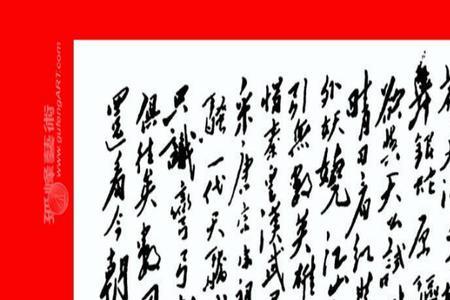 舞銀蛇原驅
欲與天公試
晴日看紅裝
外妖嬈江山
引無數英雄
惜秦皇漢武
采唐宗宋祖
騷一代天驕
只識彎弓
俱往矣數風
還看今朝
www.gufengART.com